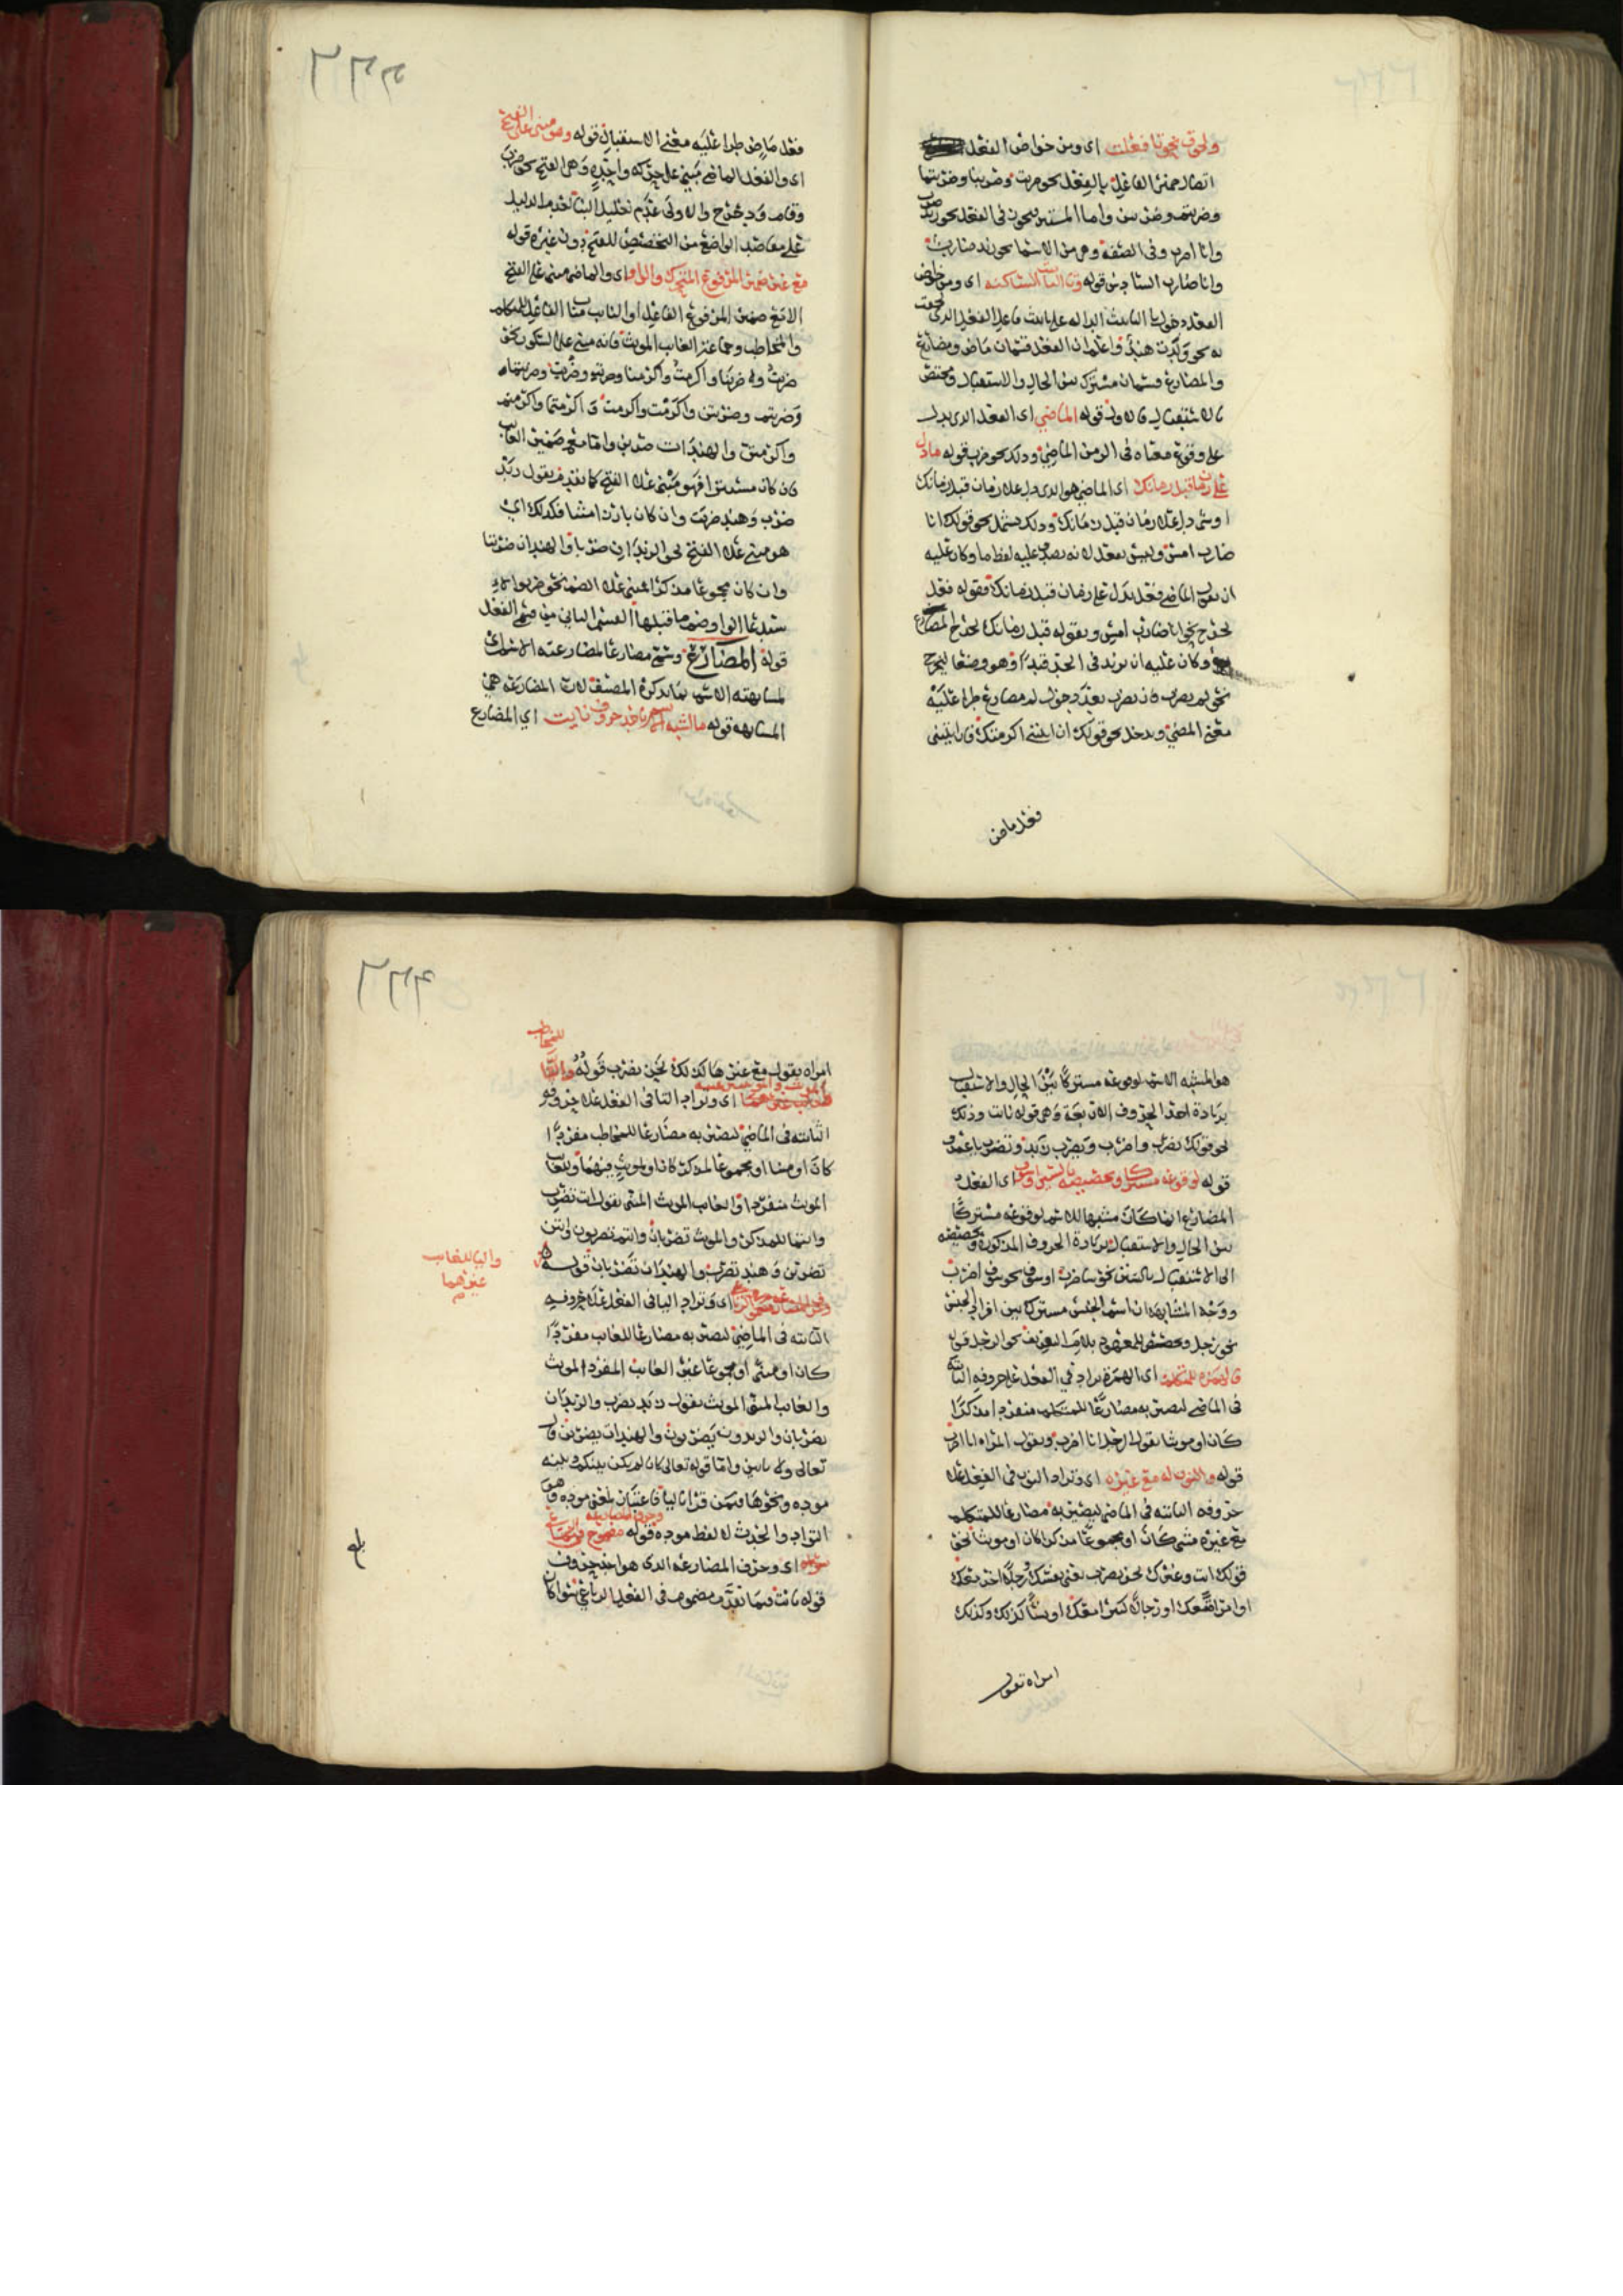 ولحوق نحو تا فعلت اى ومن خواص الفعل
اتصال ضمير الفاعل بالفعل نحو ضربت وضربنا وضربتما
وضربتم وضربتن واما المستتر فيكون فى الفعل نحو زيد ضرب
وانا اضرب وفى الصفة وهى من الاسما نحو زيد ضارب
وانا ضارب السادس قوله وتا التانيث الساكنه اى ومن خواص
الفعل دخول تا التانيث الداله على تانيث فاعل الفعل الذى لحقت
به نحو ولدت هند واعلم ان الفعل قسمان ماض ومضارع
والمضارع قسمان مشترك بين الحال والاستقبال ومختص
بالاستقبال فالاول قوله الماضي اى الفعل الدى يدل
على وقوع معناه فى الزمن الماضي ودلك نحو ضرب قوله مادل
على زمان قبل زمانك اى الماضي هو الدى دل على زمان قبل زمانك
او شى دل على زمان قبل زمانك ودلك يشمل نحو قولك انا
ضارب امس وليس بفعل لانه يصدق عليه لفظ ما وكان عليه
ان يقول الماضى فعل يدل على زمان قبل زمانك فقوله فعل
يخرج نحو انا ضارب امس وبقوله قبل زمانك يخرج المضارع
وكان عليه ان يزيد فى الحد قيدا وهو وضعا ليخرج
نحو لم يضرب فان يضرب بعد دخول لم مضارع طرا عليه
معنى المضي ويدخل نحو قولك ان اتيتنى اكرمتك فان اتيتنى
فعل ماض
فعل ماض طرا عليه معنى الاستقبال قوله وهو مبنى على الفتح
اى والفعل الماضى يبنى على حركه واحده وهى الفتح نحو ضرب
وقام ودحرج والاولى عدم تعليل البنا لعدم الدليل
على مقاصد الواضع من التخصيص للفتح دون غيره قوله
مع غير ضمير المرفوع المتحرك والواو اى والماضى مبنى على الفتح
الا مع ضمير المرفوع الفاعل او النايب مناب الفاعل للمتكلم
والمخاطب وجماعة الغايب المونث فانه مبنى على السكون نحو
ضربت وضربنا واكرمت واكرمنا وضربت وضربت وضربتما
وضربتم وضربتن واكرمت واكرمت واكرمتما واكرمتم
واكرمتن والهندات ضربن واما مع ضمير الغايب
فان كان مستترا فهو مبنى على الفتح كما تقدم يقول زيد
ضرب وهند ضربت وان كان بارزا مثنا فكدلك اى
هو مبنى على الفتح نحو الزيدان ضربا والهندان ضربتا
وان كان مجموعا مذكرا بنى على الضم نحو ضربوا
ستدعا الواو ضم ما قبلها القسم الثانى من قسمى الفعل
قوله المضارع وسمى مضارعا لمضارعته الاسم اى
لمشابهته الاسم بما يذكره المصنف لان المضارعه هى
المشابهه قوله ما اشبه الاسم باحد حروف نايت اي المضارع
هو المشبه الاسم لوقوعه مشتركا بين الحال والاستقبال
بزيادة احد الحروف الاربعة وهى قوله نايت وذلك
نحو قولك نضرب واضرب ويضرب زيد وتضرب يا عمرو
قوله لوقوعه مشتركا وتخصيصه بالسين او سوف اى الفعل
المضارع انما كان مشبها للاسم لوقوعه مشتركا
بين الحال والاستقبال بزيادة الحروف المذكوره وتخصيصه
الى الاستقبال بالسين نحو ساضرب او سوف نحو سوف اضرب
ووجه المشابهه ان اسم الجنس مشترك بين افراد الجنس
نحو رجل ومختص للمعهود بلام التعريف نحو الرجل قوله
فالهمزه للمتكلم اى الهمزة تزاد في الفعل على حروفه الثابته
فى الماضى ليصير به مضارعا للمتكلم منفردا مذكرا
كان او مونثا يقول الرجل انا اضرب وتقول المراه انا اضرب
قوله والنون له مع غيره اى وتزاد النون فى الفعل على
حروفه الثابته فى الماضى ليصير به مضارعا للمتكلم
مع غيره مثنى كان او مجموعا مذكرا كان او مونثا نحو
قولك انت وغيرك نحن نضرب تعنى نفسك ورجلا اخر معك
او امراة معك او رجالا كثيرا معك او نسا كذلك وكذلك
امراه تقول
امراه تقول مع غيرها كذلك نحن نضرب قوله والتا للمخاطب
اى وتزاد التا فى الفعل على حروفه
الثابته فى الماضي ليصير به مضارعا للمخاطب مفردا
كان او مثنا او مجموعا لمذكر كان او لمونث فيهما وللغايب
المونث منفردا والغايب المونث المثنى يقول انت تضرب
وانتما للمذكر والمونث تضربان وانتم تضربون وانتن
تضربن وهند تضرب والهندان تضربان قوله
والياء للغايب
غيرهما
اى وتزاد اليا فى الفعل على حروفه
الثابته فى الماضي ليصير به مضارعا للغايب مفردا
كان او مثنى او مجموعا غير الغايب المفرد المونث
والغايب المثنى المونث يقول زيد يضرب والزيدان
يضربان والزيدون يضربون والهندات يضربن قال
تعالى ولا ياتين واما قوله تعالى كان لم يكن بينكم وبينه
موده ونحوها فيمن قرا باليا فاعتبار لمعنى موده وهو
التواد والحدث لا لفظ موده قوله
اى وحرف المضارعه الدى هو احد حروف
قوله نايت فيما تقدم مضموم فى الفعل الرباعي سوا كان
بلغ